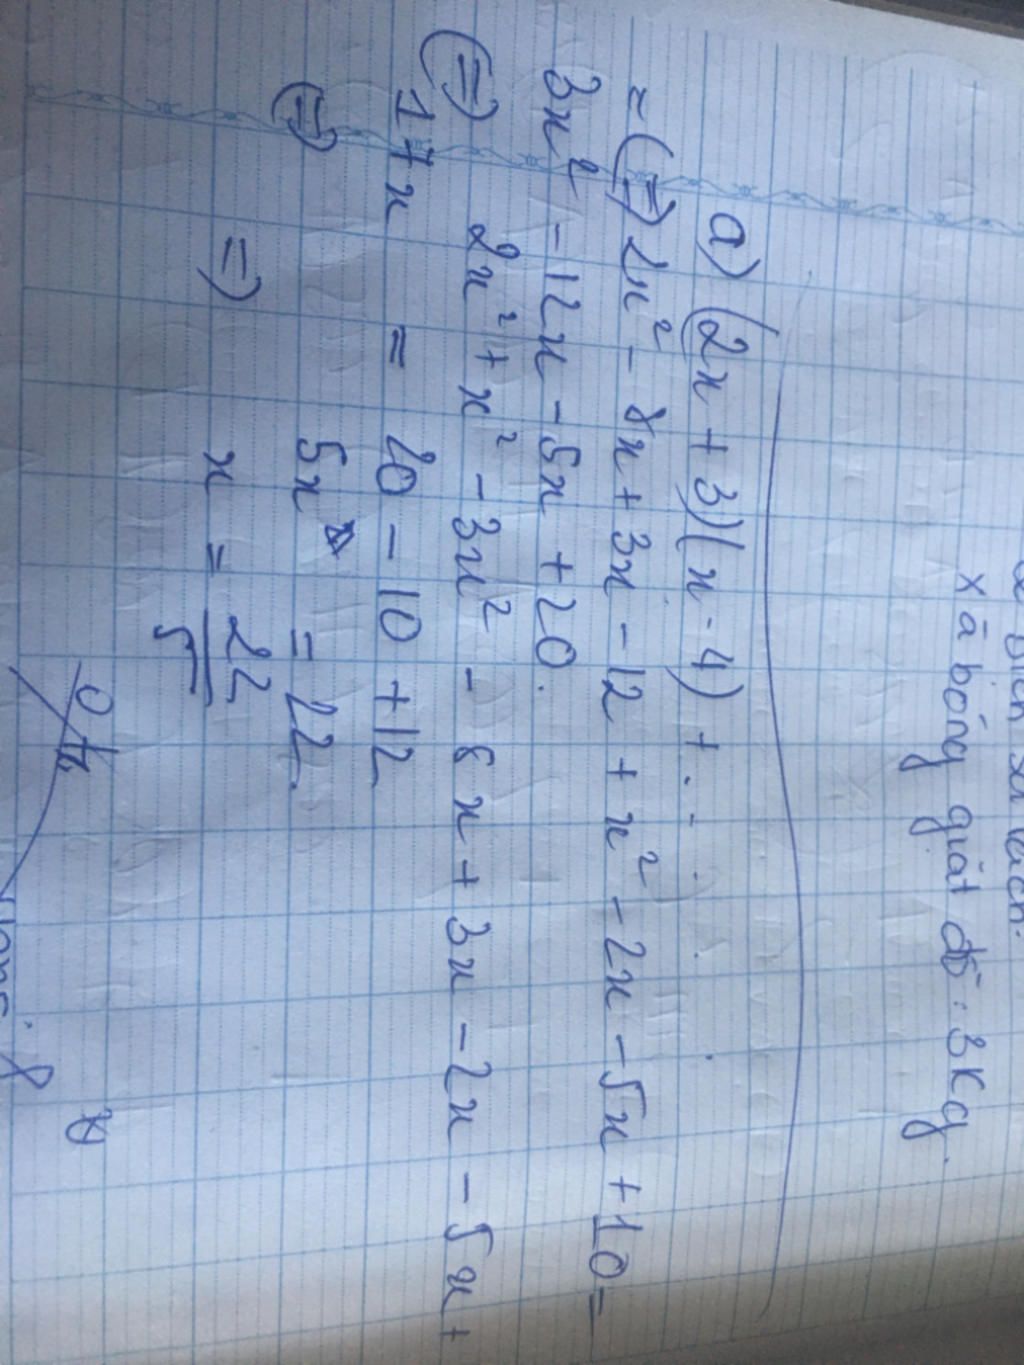 xà bông giặt đồ: 3Kg.
a) (2x + 3)(x - 4) + . . . . .
= (=) 2x² - 8x + 3x - 12 + x² - 2x - 5x + 10 =
3x² - 12x - 5x + 20.
(=) 2x² + x² - 3x² - 8x + 3x - 2x - 5x +
17x = 20 - 10 + 12
(=) 5x = 22.
=) x = 22/5